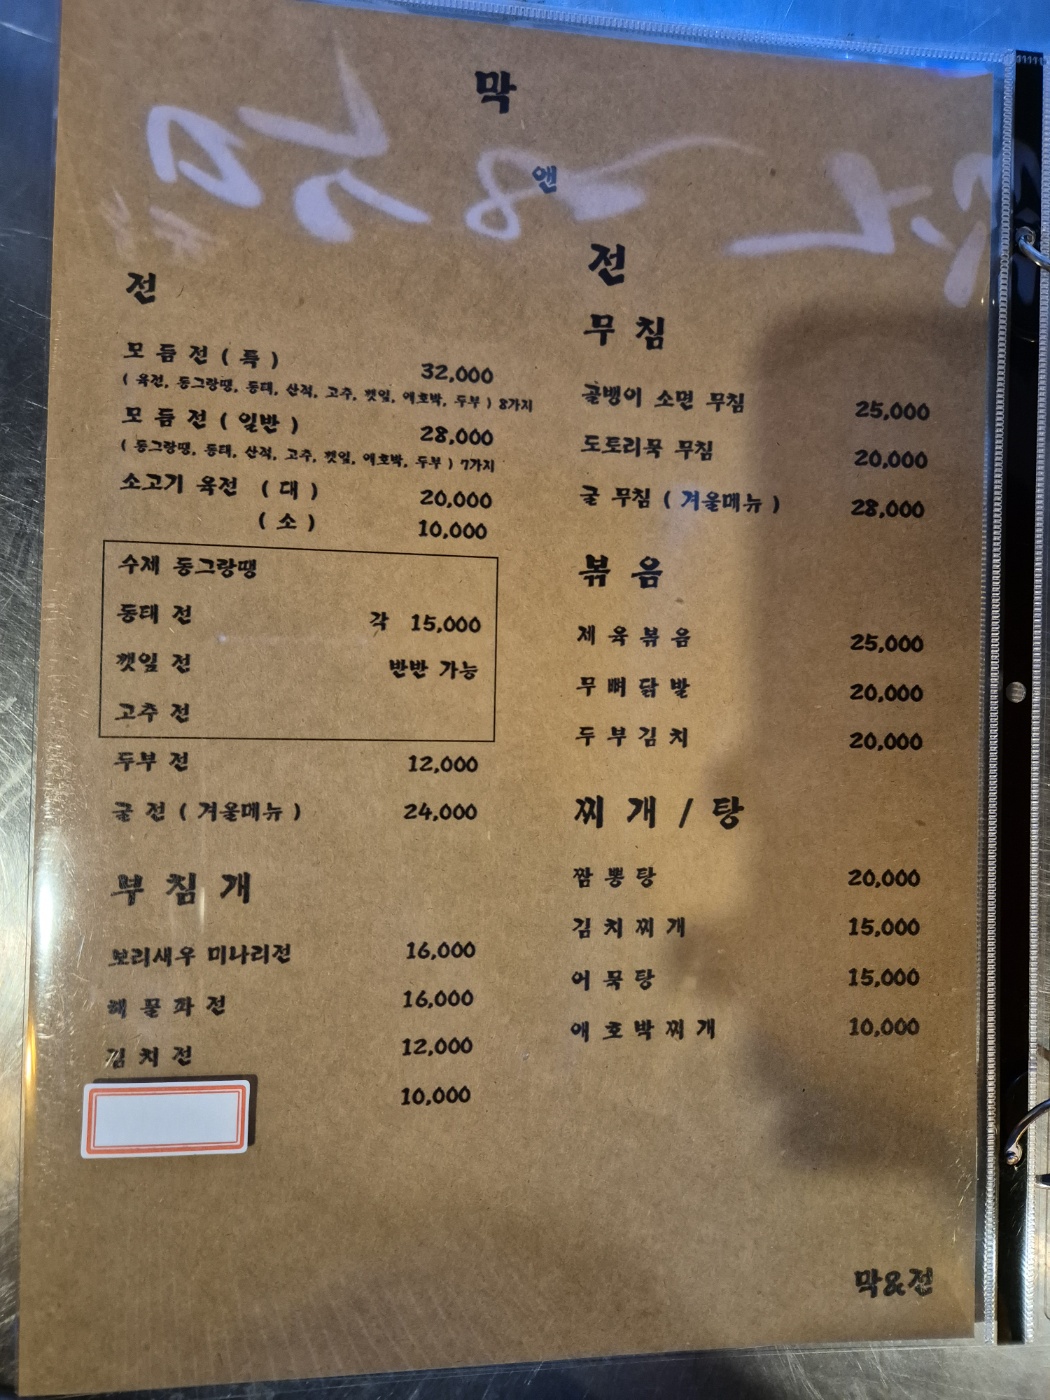 막
앤
전
전
모듬전 (특) 32,000
(육전, 동그랑땡, 동태, 산적, 고추, 깻잎, 애호박, 두부) 8가지
모듬전 (일반) 28,000
(동그랑땡, 동태, 산적, 고추, 깻잎, 애호박, 두부) 7가지
소고기 육전 (대) 20,000
(소) 10,000
수제 동그랑땡
동태 전 각 15,000
깻잎 전 반반 가능
고추 전
두부 전 12,000
굴 전 (겨울메뉴) 24,000
부침개
보리새우 미나리전 16,000
해물파전 16,000
김치전 12,000
10,000
무침
골뱅이 소면 무침 25,000
도토리묵 무침 20,000
굴 무침 (겨울메뉴) 28,000
볶음
제육볶음 25,000
무뼈닭발 20,000
두부김치 20,000
찌개 / 탕
짬뽕탕 20,000
김치찌개 15,000
어묵탕 15,000
애호박찌개 10,000
막&전